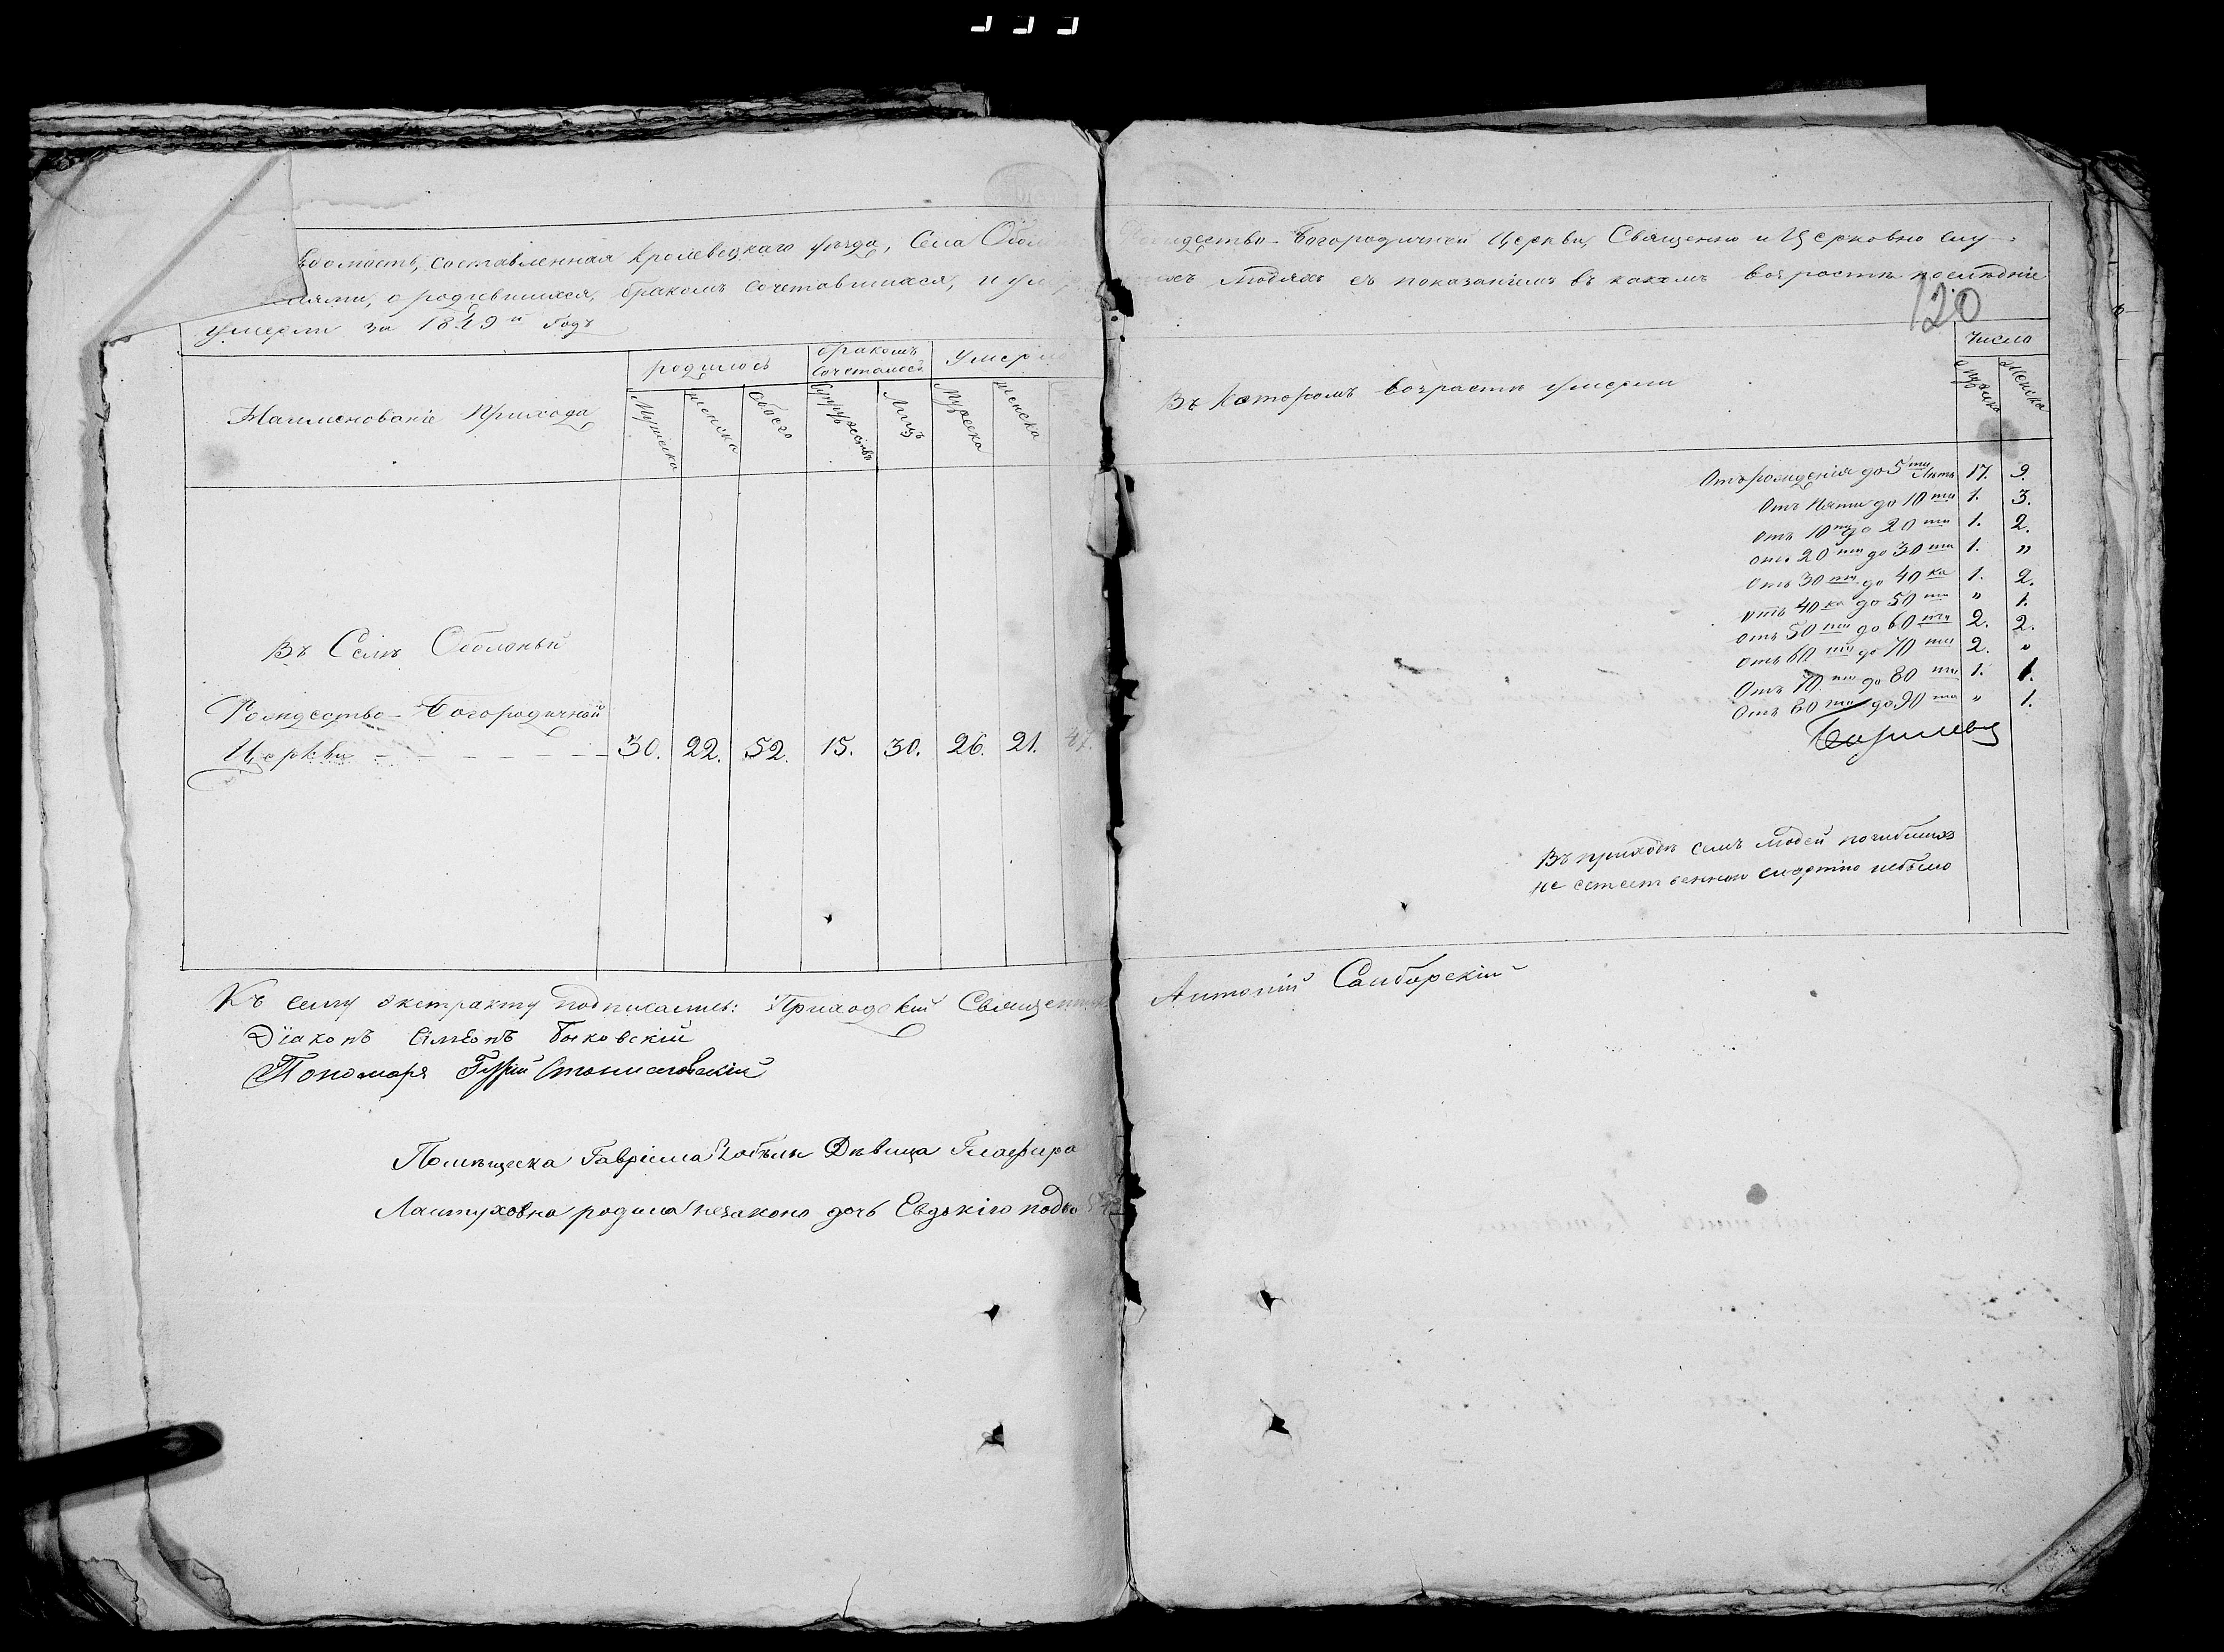 ѣдомость, составленная Кролевецкаго уѣзда, Села Оболон Рождество-Богородичной Церкви, Священно и Церковно слу-
лями, о родившихся, бракомъ сочетавшихся, и ум ихъ людяхъ съ показаніемъ въ какомъ возрастѣ послѣдніе
120
умерли за 1849й Годъ
Наименованіе Прихода
родилось
бракомъ сочеталось
Умерло
Мужеска
женска
Обоего
Супружествъ
Лицъ
Мужеска
женска
Въ Которомъ возрастѣ умерли
Число
Мужеска
Женска
Отъ рожденія до 5ти Лѣтъ 17. 9.
Отъ Пяти до 10ти 1. 3.
Отъ 10ти до 20ти 1. 2.
Отъ 20ти до 30ти 1. "
Отъ 30ти до 40ка 1. 2.
Отъ 40ка до 50ти " 1.
Отъ 50ти до 60ти 2. 2.
Отъ 60ти до 70ти 2. "
Отъ 70ти до 80ти 1. 1.
Отъ 80ти до 90та " 1.
Въ Селѣ Оболоньи
Рождество-Богородичной
Церкви 30. 22. 52. 15. 30. 26. 21. 47.
Въ приходѣ семъ людей погибшихъ
не естественною смертію небыло
Къ сему экстракту подписались: Приходскій Священникъ Антоній Самборскій
Діаконъ Сімеонъ Быковскій
Пономарь Гурій Станиславскій
Помѣщека Гавріила Дѣвица Глафира
Ластуховна родила незаконо дочь Евдокію подъ